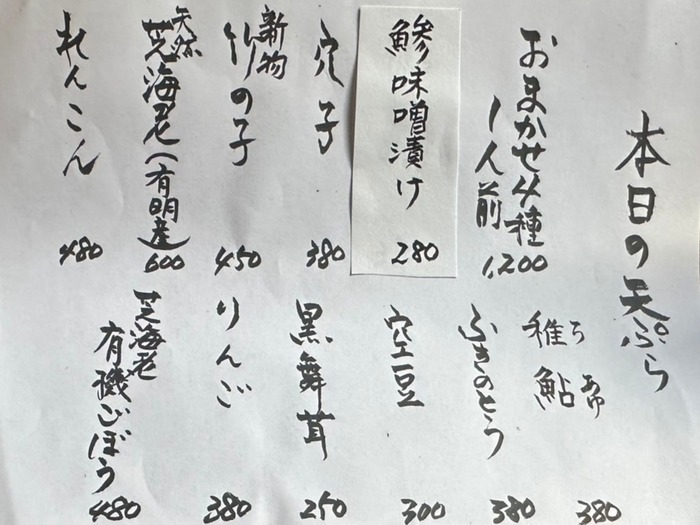 本日の天ぷら
おまかせ4種
1人前
1,200
鯵味噌漬け
280
穴子
380
新物
竹の子
450
天然
芝海老(有明産)
600
れんこん
480
稚鮎
ちあゆ
380
ふきのとう
380
空豆
300
黒舞茸
250
りんご
380
芝海老
有機ごぼう
480